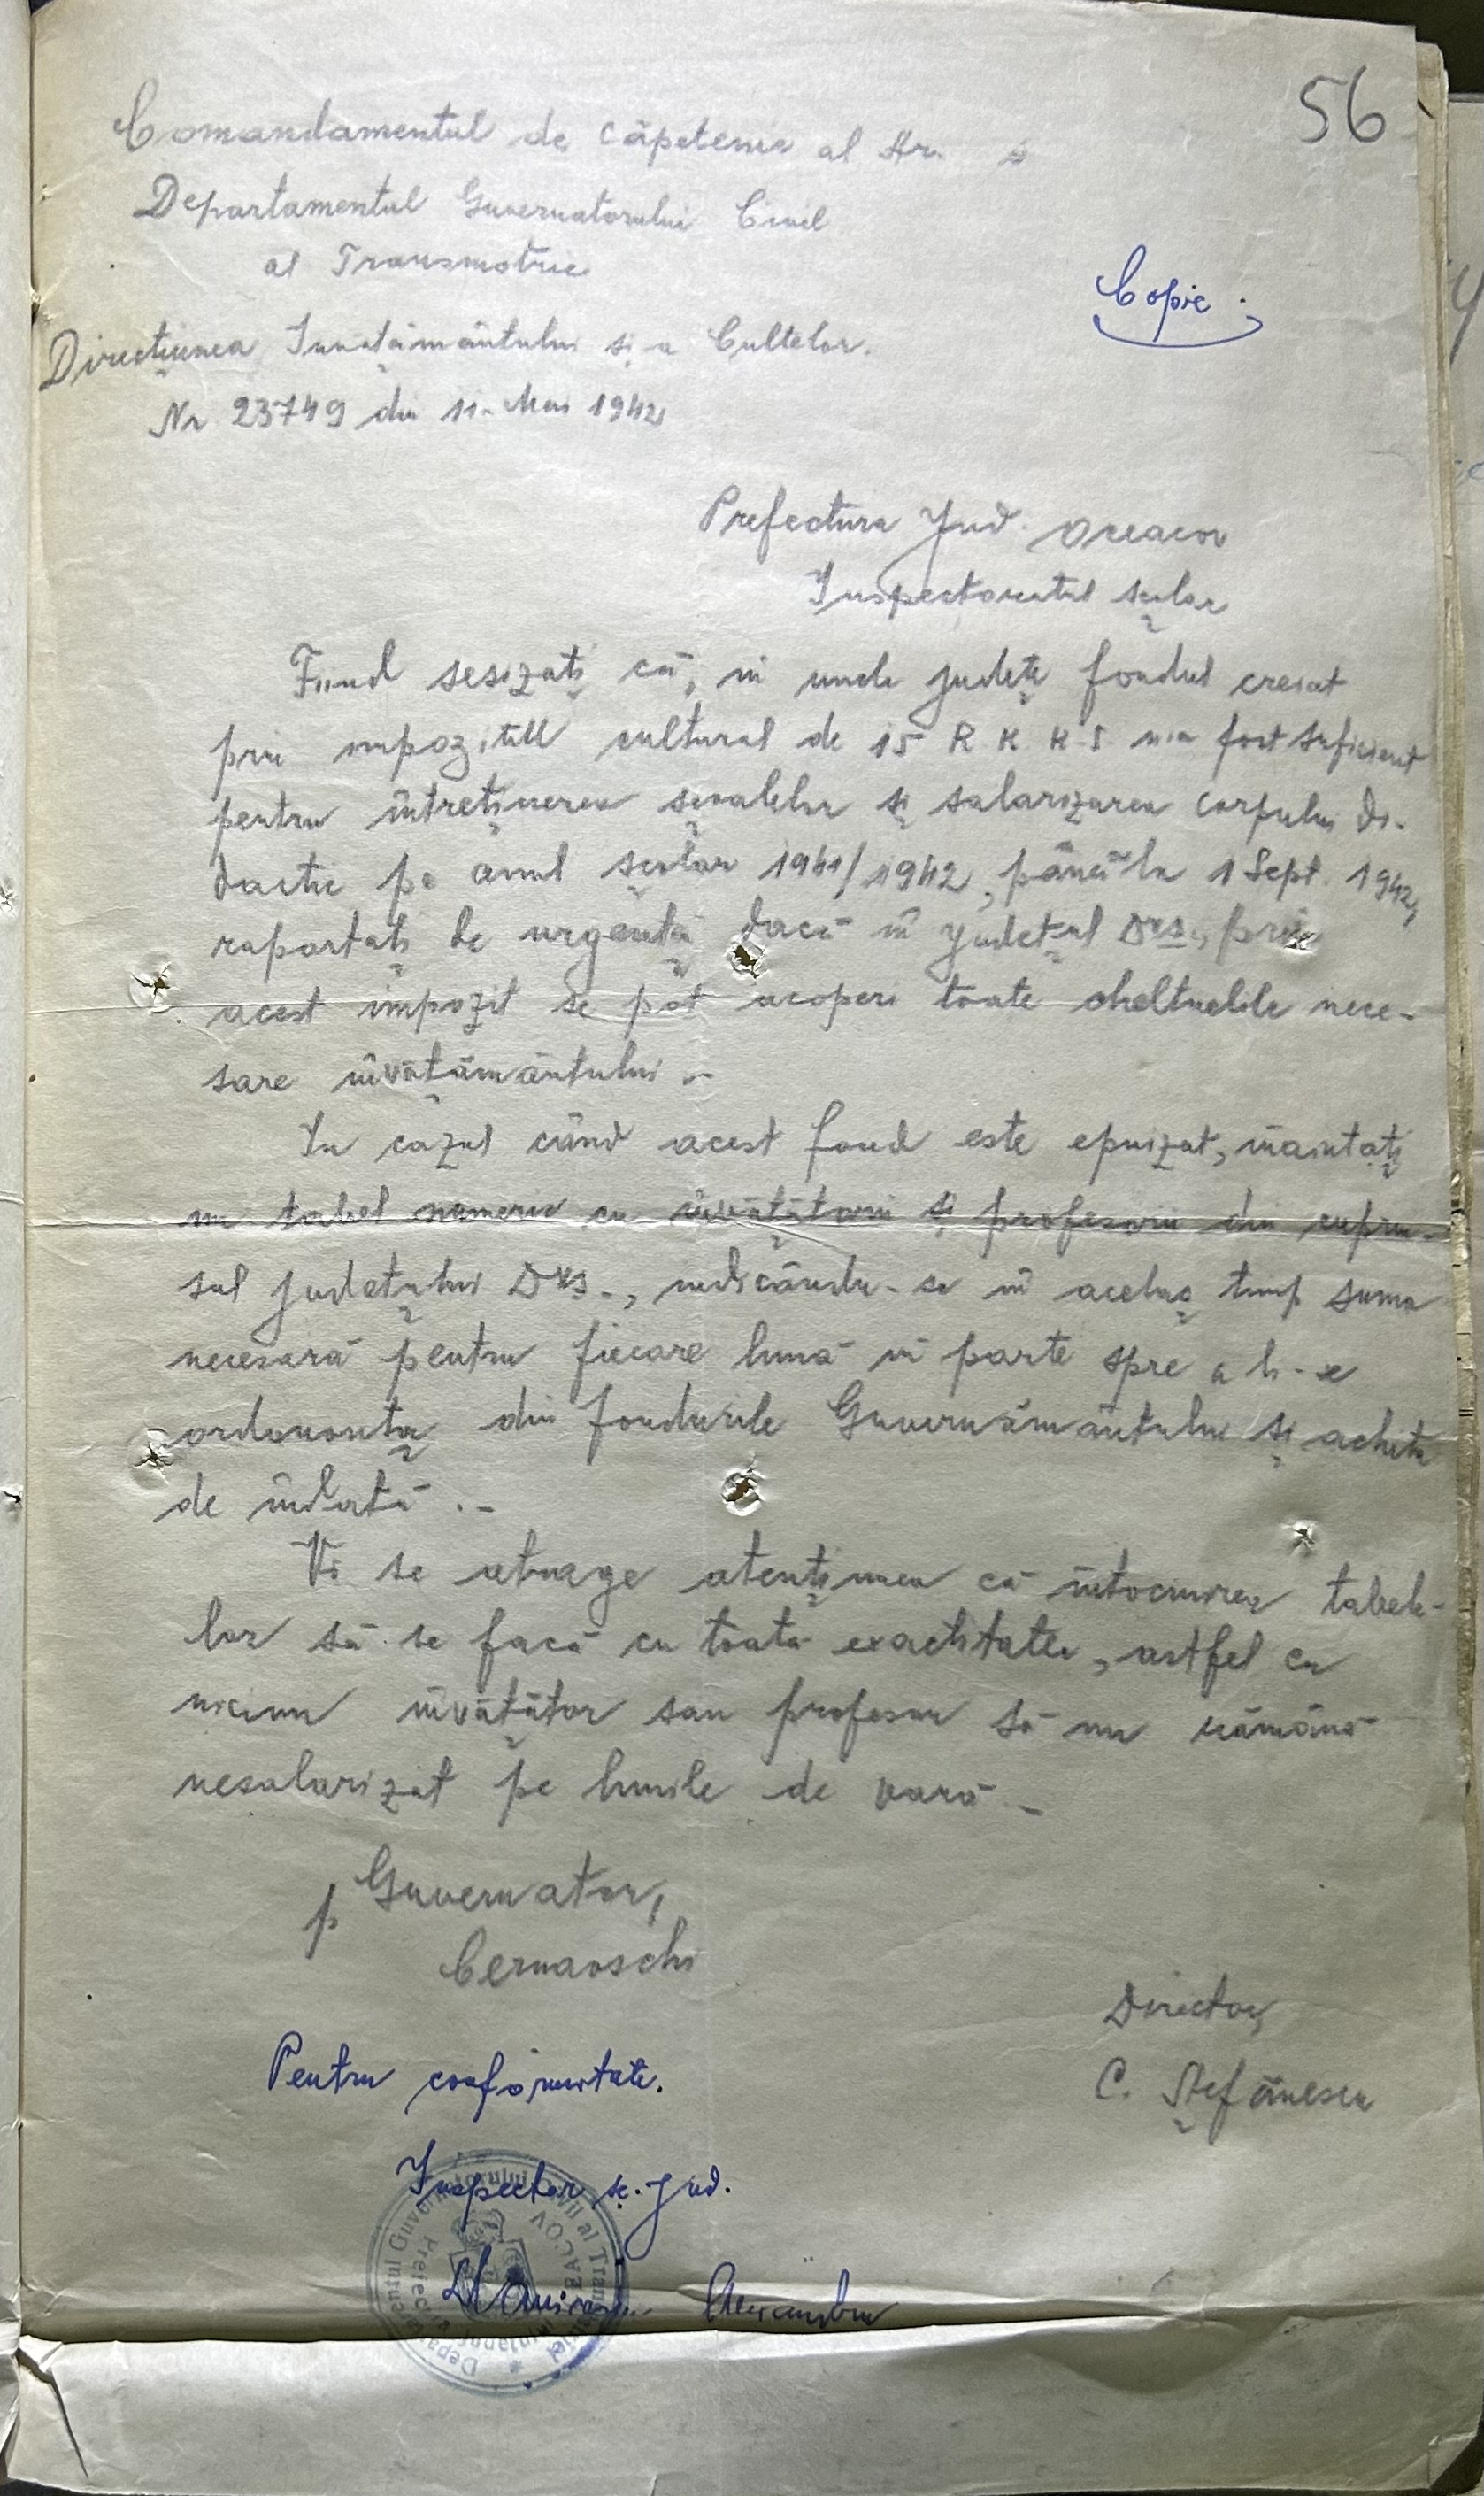 56
Comandamentul de Căpetenie al Ar.
Departamentul Guvernatorului Civil
al Transnistriei
Copie.
Direcțiunea Învățământului și a Cultelor.
Nr 23749 din 11 Mai 1942
Prefectura Jud. Oceacov
Inspectoratul școlar
Fiind sesizați că, în unele județe fondul creiat
prin impozitul cultural de 15 R K K S n'a fost suficient
pentru întreținerea școalelor și salarizarea corpului di-
dactic pe anul școlar 1941/1942, până la 1 Sept. 1942,
raportați de urgență dacă în județul Dvs., prin
acest impozit se pot acoperi toate cheltuelile nece-
sare învățământului.-
In cazul când acest fond este epuizat, înaintați
un tabel numeric cu învățătorii și profesorii din cuprin-
sul județului Dvs., indicându-se în acelaș timp suma
necesară pentru fiecare lună în parte spre a li-se
ordonanța din fondurile Guvernământului și achita
de îndată.-
Vi se atrage atențiunea că întocmirea tabele-
lor să se facă cu toată exactitatea, astfel ca
niciun învățător sau profesor să nu rămână
nesalarizat pe lunile de vară -
p Guvernator,
Cernaoschi
Director,
C. Ștefănescu
Pentru conformitate.
Inspector șc. jud.
Alexandru
Departamentul Guvernatorului Civil al Transnistriei
Prefectura Județului